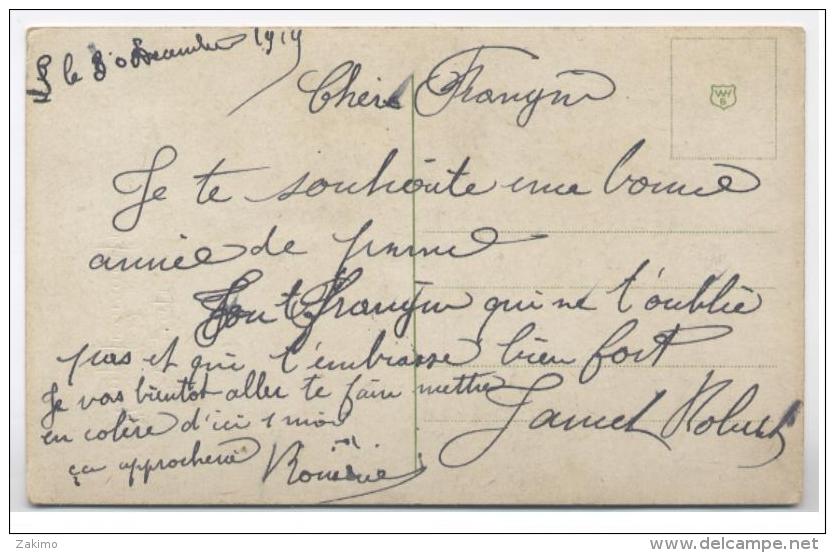 le 30 Décembre 1919
Chère Frangin
Je te souhaite une bonne
année de
Ton Frangin qui ne t'oublie
pas et qui t'embrasse bien fort
Je vas bientot aller te faire mettre
en colère d'ici 1 mois
ça approcherai
Jamet Robert
WW
B
Zakimo
www.delcampe.net